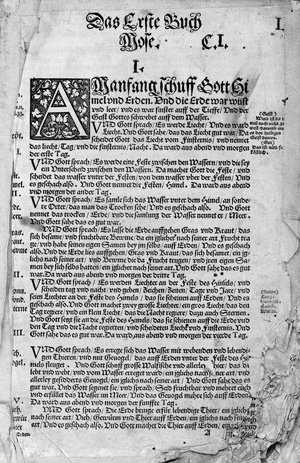 Das Erste Buch
Mose. C.I.
I.
I.
AManfang schuff Gott Hi
mel vnd Erden. Vnd die Erde war wüst
vnd leer, vnd es war finster auff der Tieffe, Vnd der
Geist Gottes schwebet auff dem Wasser.
VND Gott sprach, Es werde Liecht, Vnd es ward
Liecht. Vnd Gott sahe, das das Liecht gut war, Da
scheidet Gott das Liecht vom Finsternis, vnd nennet
das liecht, Tag, vnd die finsternis, Nacht. Da ward aus abend vnd morgen
der erste Tag.
VND Gott sprach, Es werde eine Feste zwischen den Wassern, vnd die sey
ein Vnterscheid zwischen den Wassern. Da machet Gott die Feste, vnd
scheidet das wasser vnter der Festen, von dem wasser vber der Festen, Vnd
es geschach also. Vnd Gott nennet die Festen, Himel. Da ward aus abend
vnd morgen der ander Tag.
VND Gott sprach, Es samle sich das Wasser vnter dem Himel, an sonder
Orter, das man das Trocken sehe, Vnd es geschach also. Vnd Gott
nennet das trocken, Erde, vnd die samlung der Wasser nennet er, Meer.
Vnd Gott sahe das es gut war.
VND Gott sprach, Es lasse die Erde auffgehen Gras vnd Kraut, das
sich besame, vnd fruchtbare Bewme, da ein jglicher nach seiner art Frucht tra-
ge, vnd habe seinen eigen Samen bey jm selbs, auff Erden, Vnd es geschach
also. Vnd die Erde lies auffgehen, Gras vnd Kraut, das sich besamet, ein jg-
lichs nach seiner art, vnd Bewme die da Frucht trugen, vnd jren eigen Sa-
men bey sich selbs hatten, ein jglicher nach seiner art. Vnd Gott sahe das es gut
war. Da ward aus abend vnd morgen der dritte Tag.
VND Gott sprach, Es werden Liechter an der Feste des Himels, vnd
scheiden tag vnd nacht, vnd geben, Zeichen, Zeiten, Tage vnd Jare, vnd
seien Liechter an der Feste des Himels, das sie scheinen auff Erden, Vnd es
geschach also. Vnd Gott machet zwey grosse Liechter, ein gros Liecht, das den
Tag regiere, vnd ein klein Liecht, das die Nacht regiere, dazu auch Sternen.
Vnd Gott setzt sie an die Feste des Himels, das sie schienen auff die Erde vnd
den Tag vnd die Nacht regierten, vnd scheideten Liecht vnd Finsternis. Vnd
Gott sahe das es gut war. Da ward aus abend vnd morgen der vierde Tag.
VND Gott sprach, Es errege sich das Wasser mit webenden vnd lebendi-
gen Thieren, vnd mit Geuogel, das auff Erden vnter der Feste des Hi-
mels fleuget. Vnd Gott schuff grosse Walfische vnd allerley Thier, das da
lebt vnd webt, vnd vom Wasser erreget ward, ein jglichs nach seiner art, vnd
allerley gefidderts Geuogel, ein jglichs nach seiner art, Vnd Gott sahe das es
gut war. Vnd Gott segenet sie, vnd sprach, Seid fruchtbar vnd mehret euch
vnd erfüllet das Wasser im Meer, Vnd das Geuogel mehre sich auff Erden.
Da ward aus abend vnd morgen der fünffte Tag.
VND Gott sprach, Die Erde bringe erfür lebendige Thier, ein jglichs
nach seiner art, Vieh, Gewürm vnd Thier auff Erden, ein jglichs nach
II.
III.